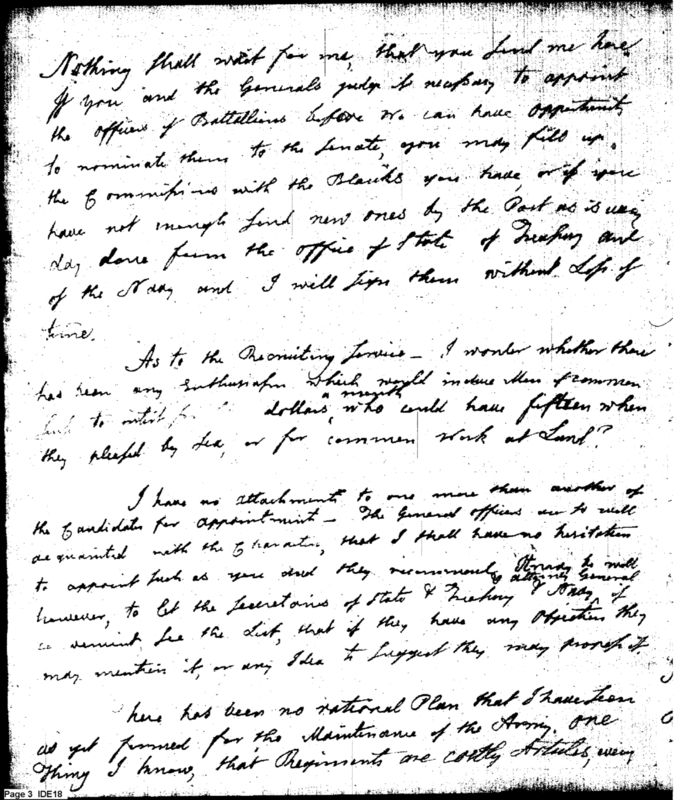 Nothing shall wait for me, that you send me here.
If you and the Generals judge it necessary to appoint
the officers of Battallions before we can have opportunity
to nominate them to the Senate, you may fill up
the Commissions with the Blanks you have, or if you
have not enough send new ones by the Post as is every
day done from the office of State of Treasury and
of the Navy and I will sign them without Loss of
time.
As to the Recruiting Service — I wonder whether there
has been any Enthusiasm which would induce Men of common
to enlist for dollars a month, who could have fifteen when
they pleased by Sea, or for common work at Land?
I have no attachments to one more than another of
the Candidates for appointment — The General officers are so well
acquainted with the Characters, that I shall have no hesitation
to appoint such as you and they recommend. It may be well
however, to let the Secretaries of State & Treasury & Navy & attorney General if
see the List, that if they have any objection they
may mention it, or any Idea to suggest they may propose it
here has been no rational Plan that I have seen
as yet formed for the Maintenance of the Army. One
Thing I know, that Regiments are costly Articles, every
Page 3 IDE18